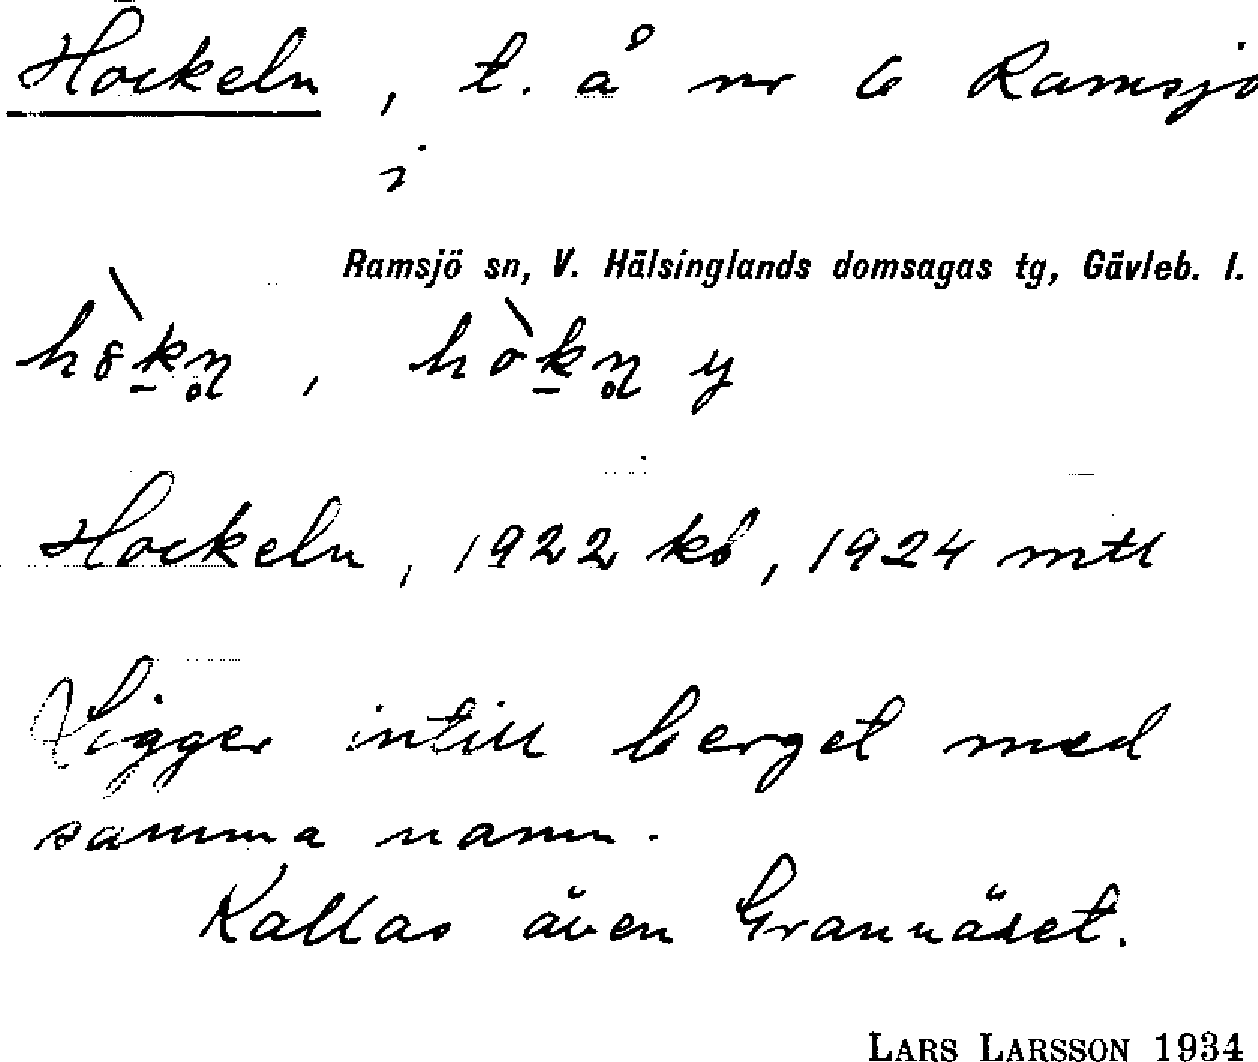 Hockeln, t. å nr 6 Ramsjö
i
Ramsjö sn, V. Hälsinglands domsagas tg, Gävleb. l.
hòkn̥, hòkn̥ y
Hockeln, 1922 kb, 1924 mtl
Ligger intill berget med
samma namn.
Kallas även Grannäset.
LARS LARSSON 1934